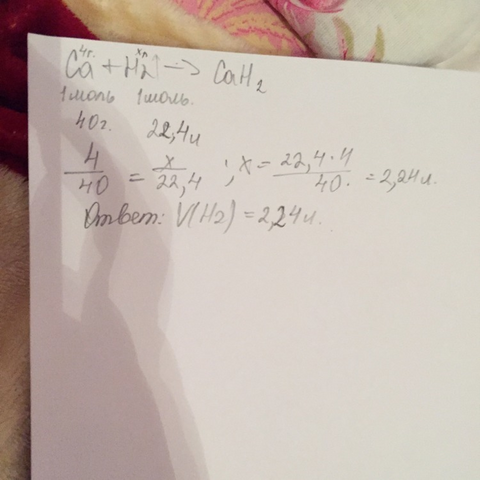 4г. xл
Ca + H2 → CaH2
1моль 1моль.
40г. 22,4л
4/40 = x/22,4 ; x = 22,4·4/40. = 2,24л.
Ответ: V(H2) = 2,24л.